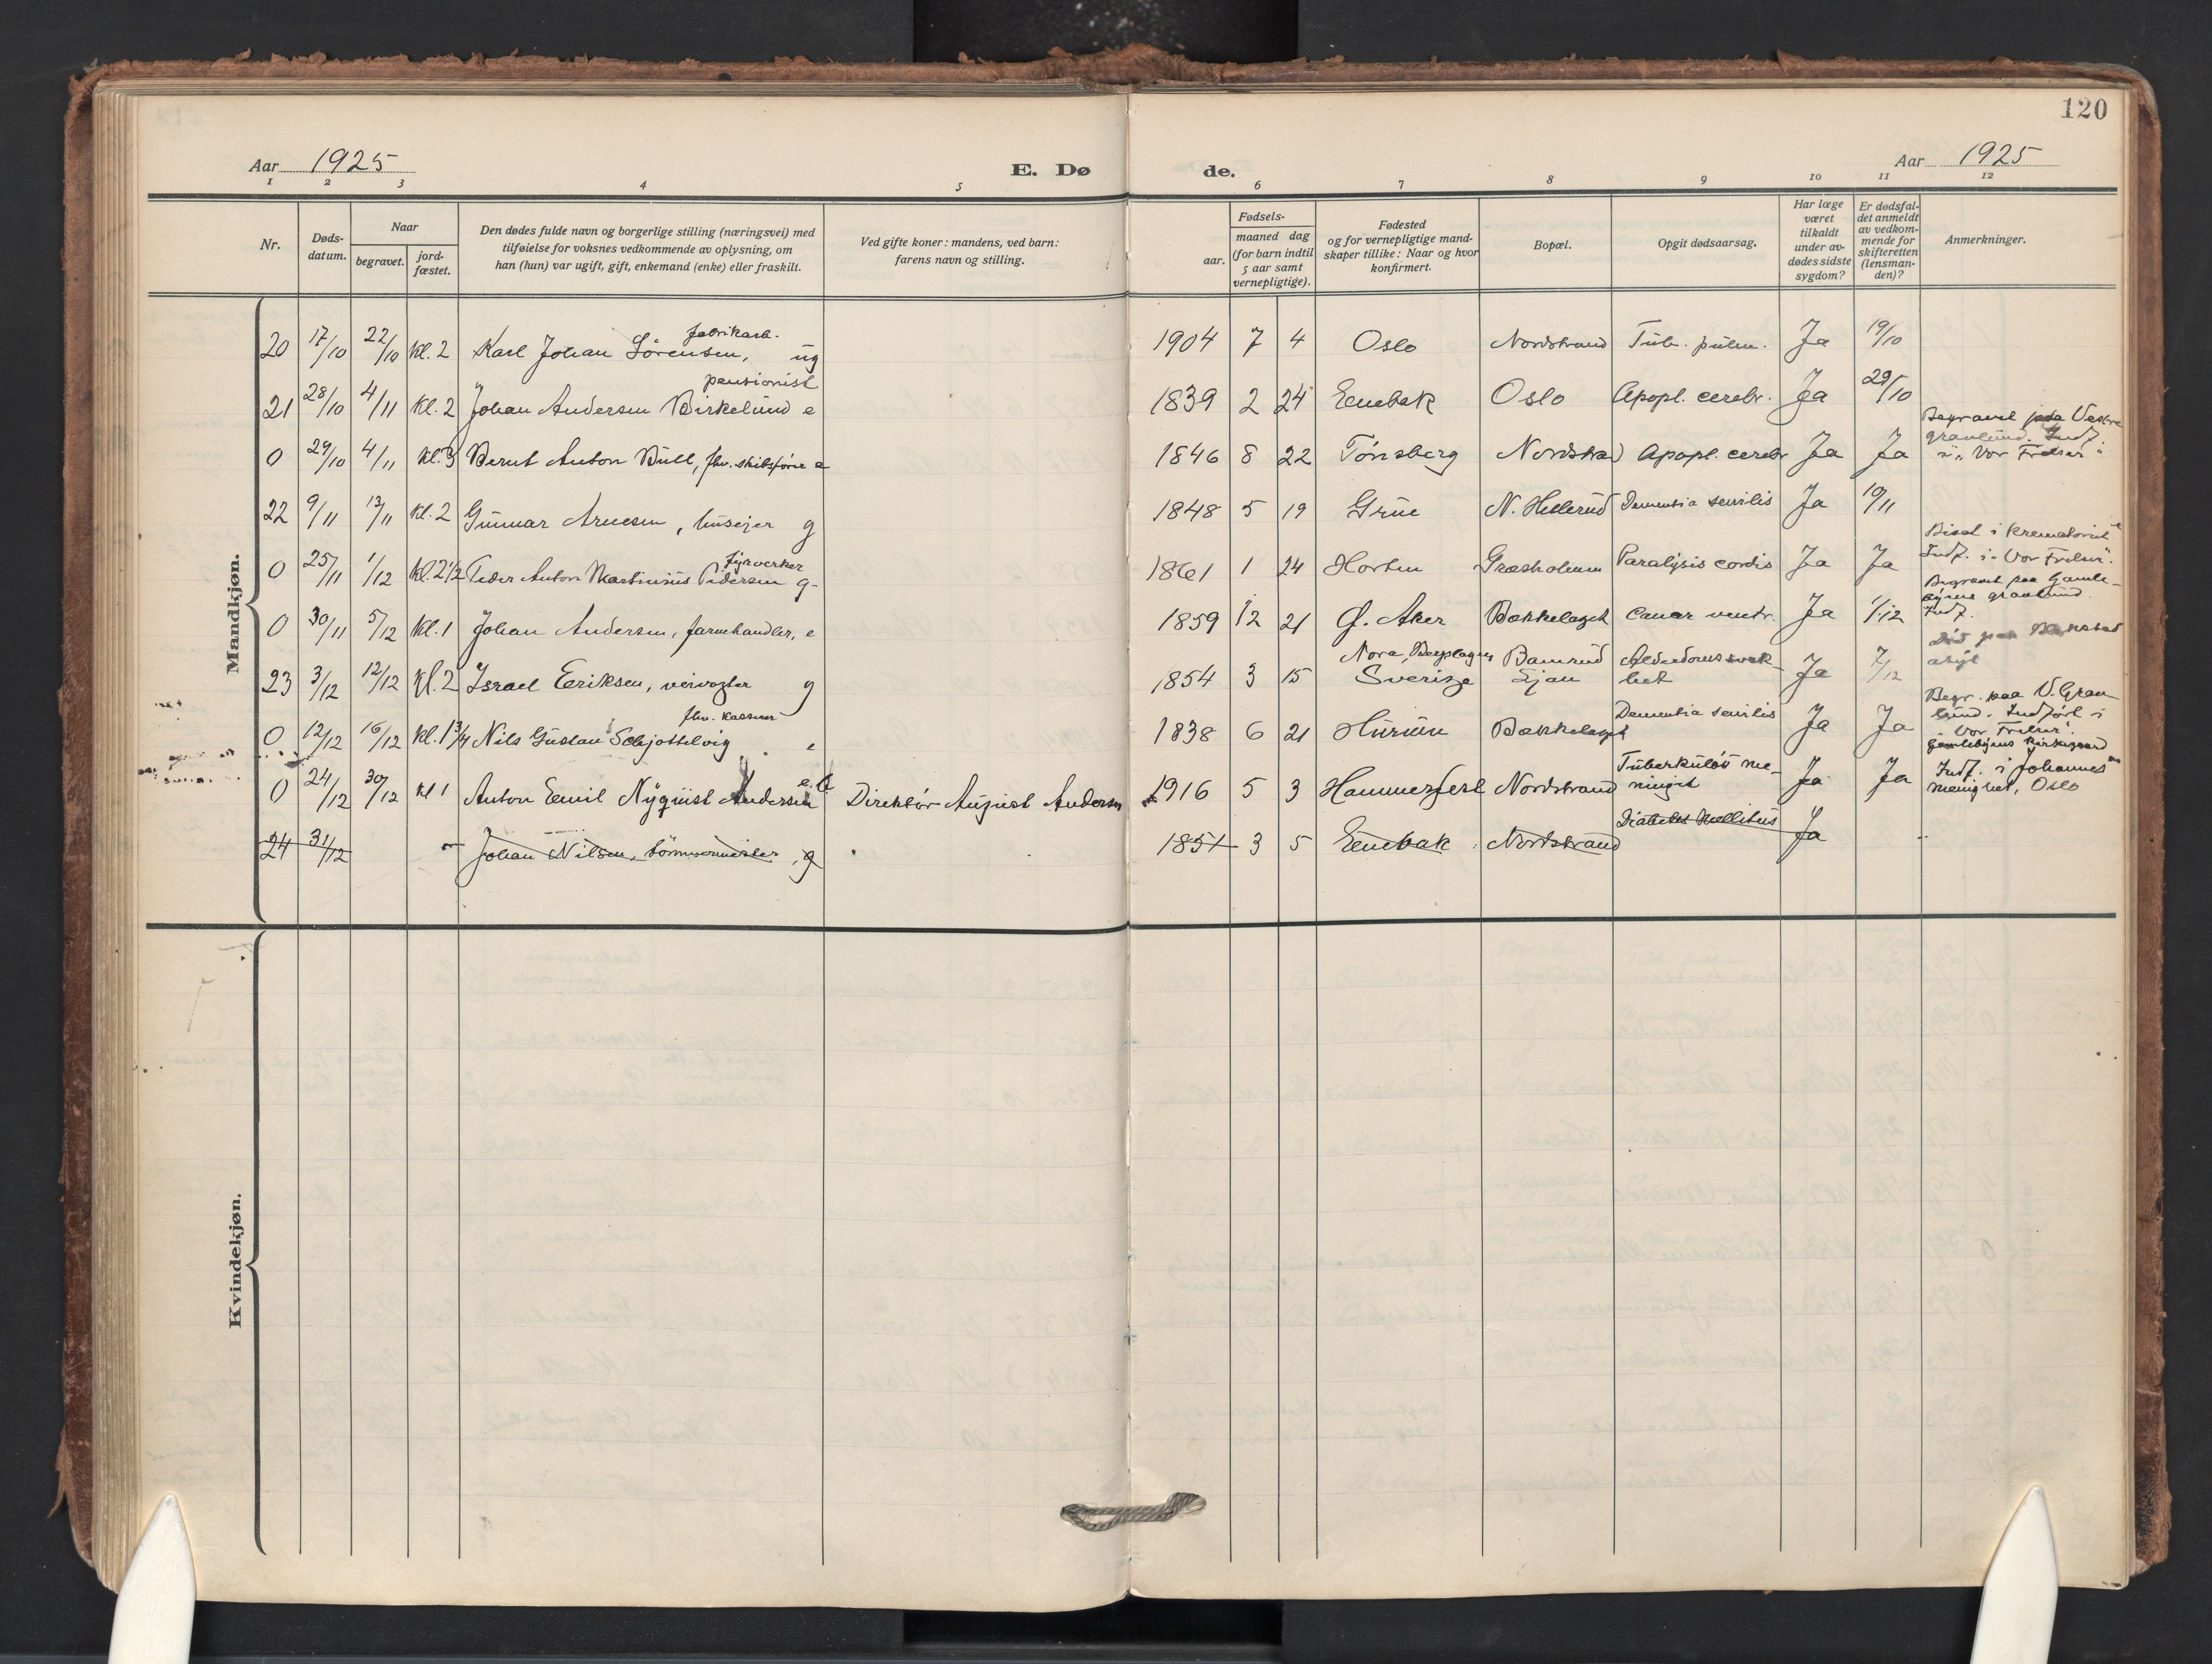 120
Aar 1925 E. Døde. Aar 1925
1 2 3 4 5 6 7 8 9 10 11 12
Nr.
Døds-
datum.
Naar
begravet.
jord-
fæstet.
Den dødes fulde navn og borgerlige stilling (næringsvei) med
tilføielse for voksnes vedkommende av oplysning, om
han (hun) var ugift, gift, enkemand (enke) eller fraskilt.
Ved gifte koner: mandens, ved barn:
farens navn og stilling.
Fødsels-
aar.
maaned dag
(for barn indtil
5 aar samt
vernepligtige).
Fødested
og for vernepligtige mand-
skaper tillike: Naar og hvor
konfirmert.
Bopæl.
Opgit dødsaarsag.
Har læge
været
tilkaldt
under av-
dødes sidste
sygdom?
Er dødsfal-
det anmeldt
av vedkom-
mende for
skifteretten
(lensman-
den)?
Anmerkninger.
Mandkjøn.
fabrikarb.
20 17/10 22/10 kl. 2 Karl Johan Sörensen, ug 1904 7 4 Oslo Nordstrand Tub. pulm. Ja 19/10
pensionist
21 28/10 4/11 kl. 2 Johan Andersen Birkelund e 1839 2 24 Enebak Oslo Apopl. cerebr. Ja 29/10
Begravet paa Vestre
gravlund. Indf.
i "Vor Frelser"
0 29/10 4/11 kl. 3 Bernt Anton Bull, fhv. skibsfører e 1846 8 22 Tønsberg Nordstrand Apopl. cerebr Ja Ja
22 9/11 13/11 kl. 2 Gunnar Arnesen, husejer g 1848 5 19 Grue N. Hellerud Dementia senilis Ja 10/11
Bisat i krematoriet
Indf. i "Vor Frelser".
fyrverker
0 25/11 1/12 kl. 2 1/2 Peder Anton Martinius Pedersen g 1861 1 24 Horten Græsholmen Paralysis cordis Ja Ja
Begravet paa Gamle-
byens gravlund.
Indf.
0 30/11 5/12 kl. 1 Johan Andersen, farvehandler, e 1859 12 21 Ø. Aker Bækkelaget Cancer ventr. Ja 1/12
Død paa
asyl
23 3/12 12/12 kl. 2 Israel Eriksen, veivogter g 1854 3 15 Nora, Bergslagen
Sverige Ljan Alderdomssvak-
het Ja 7/12
Begr. paa V. Grav-
lund. Indført i
Vor Frelser.
fhv. kasserer
0 12/12 16/12 kl. 1 3/4 Nils Gustav Schjøttelvig e 1838 6 21 Hurum Bækkelaget Dementia senilis Ja Ja
Gamlebyens kirkegaard
Indf. i Johannes
menighet, Oslo
0 24/12 30/12 kl 1 Anton Emil Nyquist Andersen Direktør August Andersen 1916 5 3 Hammerfest Nordstrand Tuberkuløs me-
ningit Ja Ja
24 31/12 Johan Nilsen, tømmermester, g 1851 3 5 Enebak Nordstrand Diabetes Mellitus Ja
Kvindekjøn.